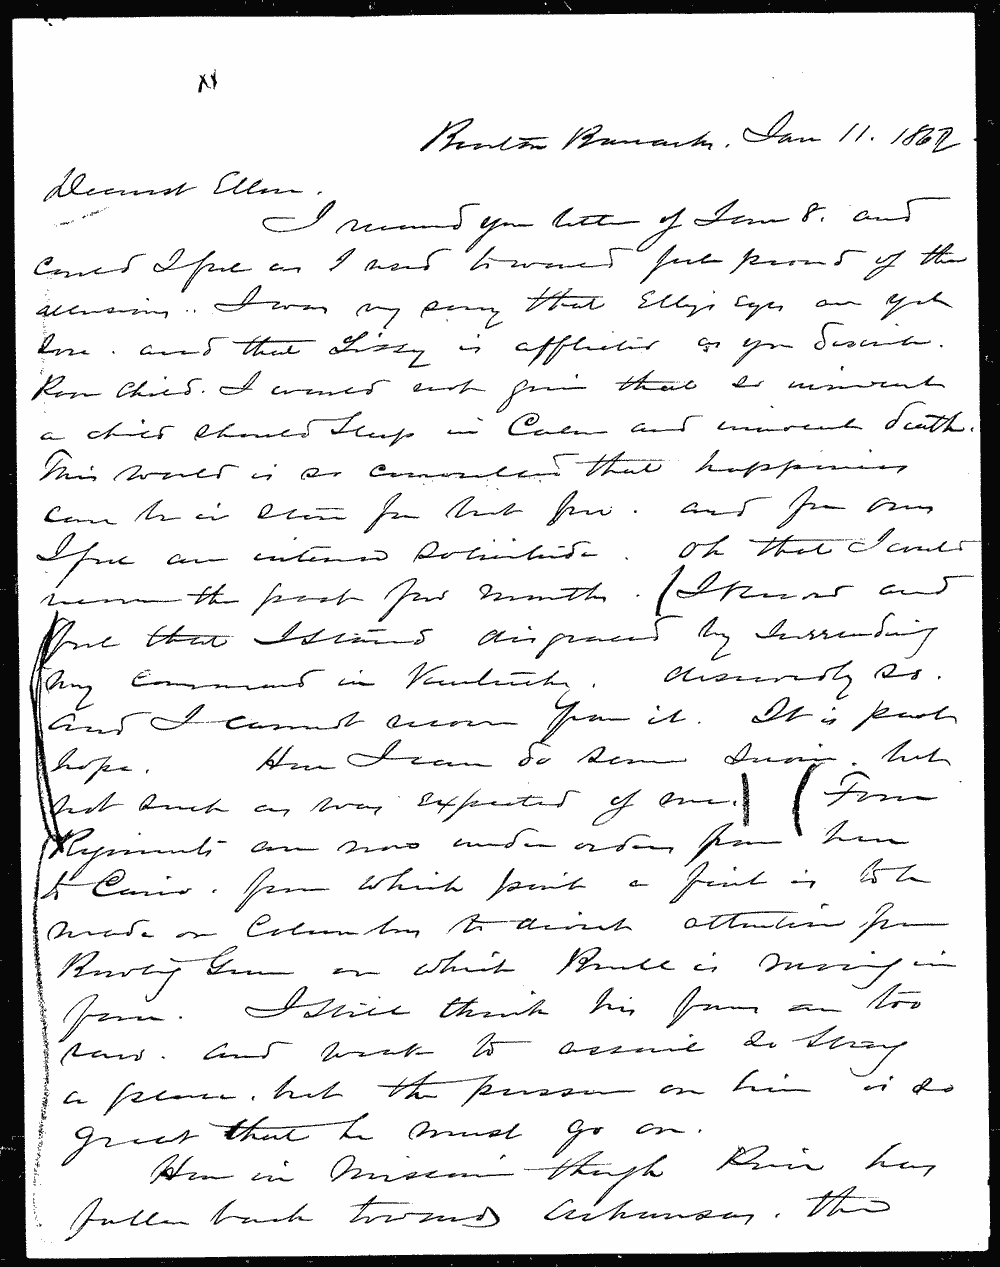 Benton Barracks. Jan 11. 1862
Dearest Ellen.
I received your letter of Jan 8. and
could I feel as I used toward feel proud of the
allusions.. I was very sorry that Elly's Eyes are yet
sore. and that Lizzy is afflicted as you describe.
Poor child. I would not grieve that so innocent
a child should Sleep in Calm and innocent death.
This world is so that happiness
can be in store for but few. and for ours
I feel an intense solicitude. oh that I could
the past few months. (I know and
feel that I stand disgraced by Surrendering
my command in Kentucky. deservedly so.
and I cannot recover from it. It is past
hope. Here I can do some Service. but
not such as was expected of me.) (Four
Regiments are now under orders from here
to Cairo. from which point a feint is to be
made on Columbus to divert attention from
Bowling Green on which Buell is moving in
force. I still think his forces are too
raw. and weak to assail so Strong
a place. but the pressure on him is so
great that he must go on.
Here in Missouri though Price has
fallen back towards Arkansas. the